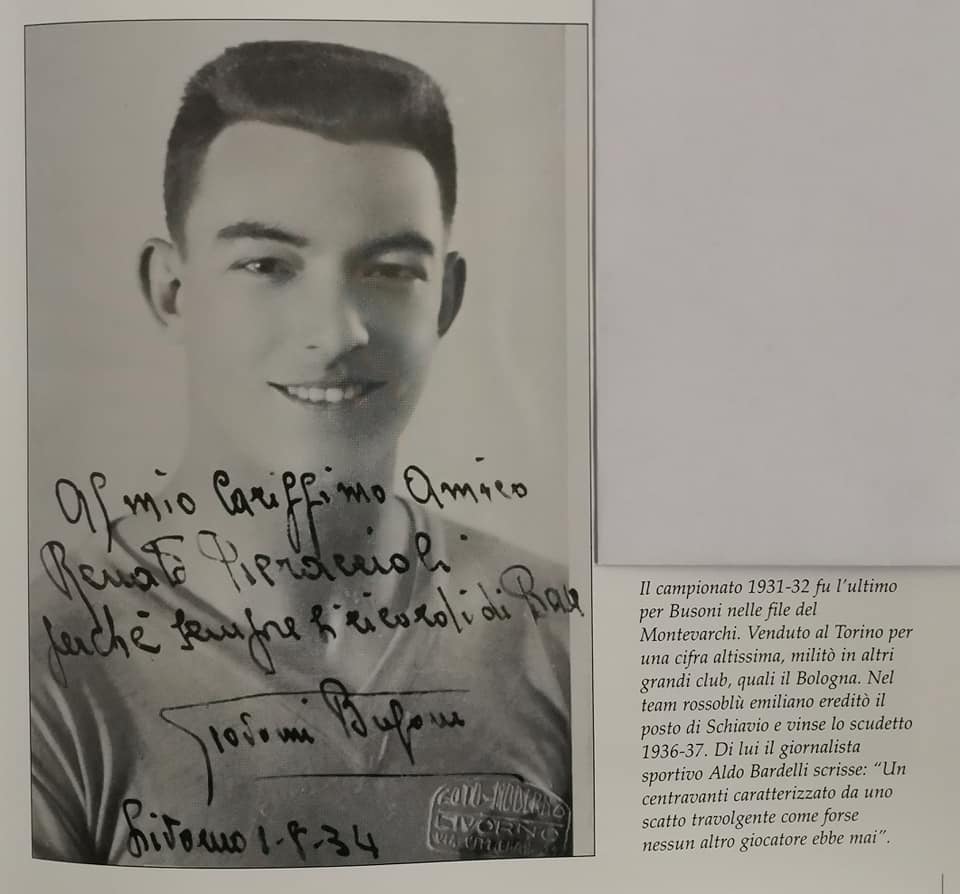 Al mio Carissimo Amico
Renato Pieraccioli
perché sempre si ricordi di
Giovanni Busoni
Livorno 1-8-34
FOTO-MODERNO
LIVORNO
Il campionato 1931-32 fu l'ultimo
per Busoni nelle file del
Montevarchi. Venduto al Torino per
una cifra altissima, militò in altri
grandi club, quali il Bologna. Nel
team rossoblù emiliano ereditò il
posto di Schiavio e vinse lo scudetto
1936-37. Di lui il giornalista
sportivo Aldo Bardelli scrisse: "Un
centravanti caratterizzato da uno
scatto travolgente come forse
nessun altro giocatore ebbe mai".